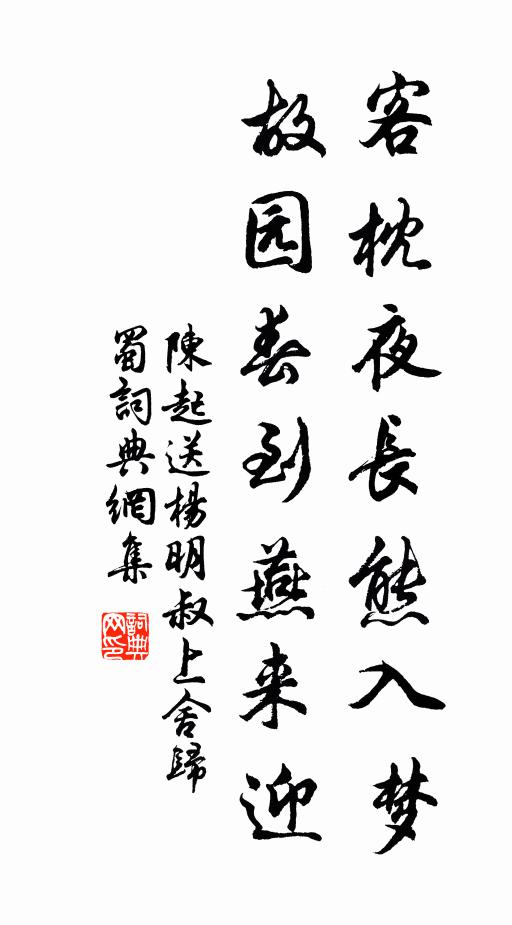 客枕夜長熊入梦
故园春到燕来迎
陳起送楊明叔上舍歸
蜀詞典網集
詞典网印